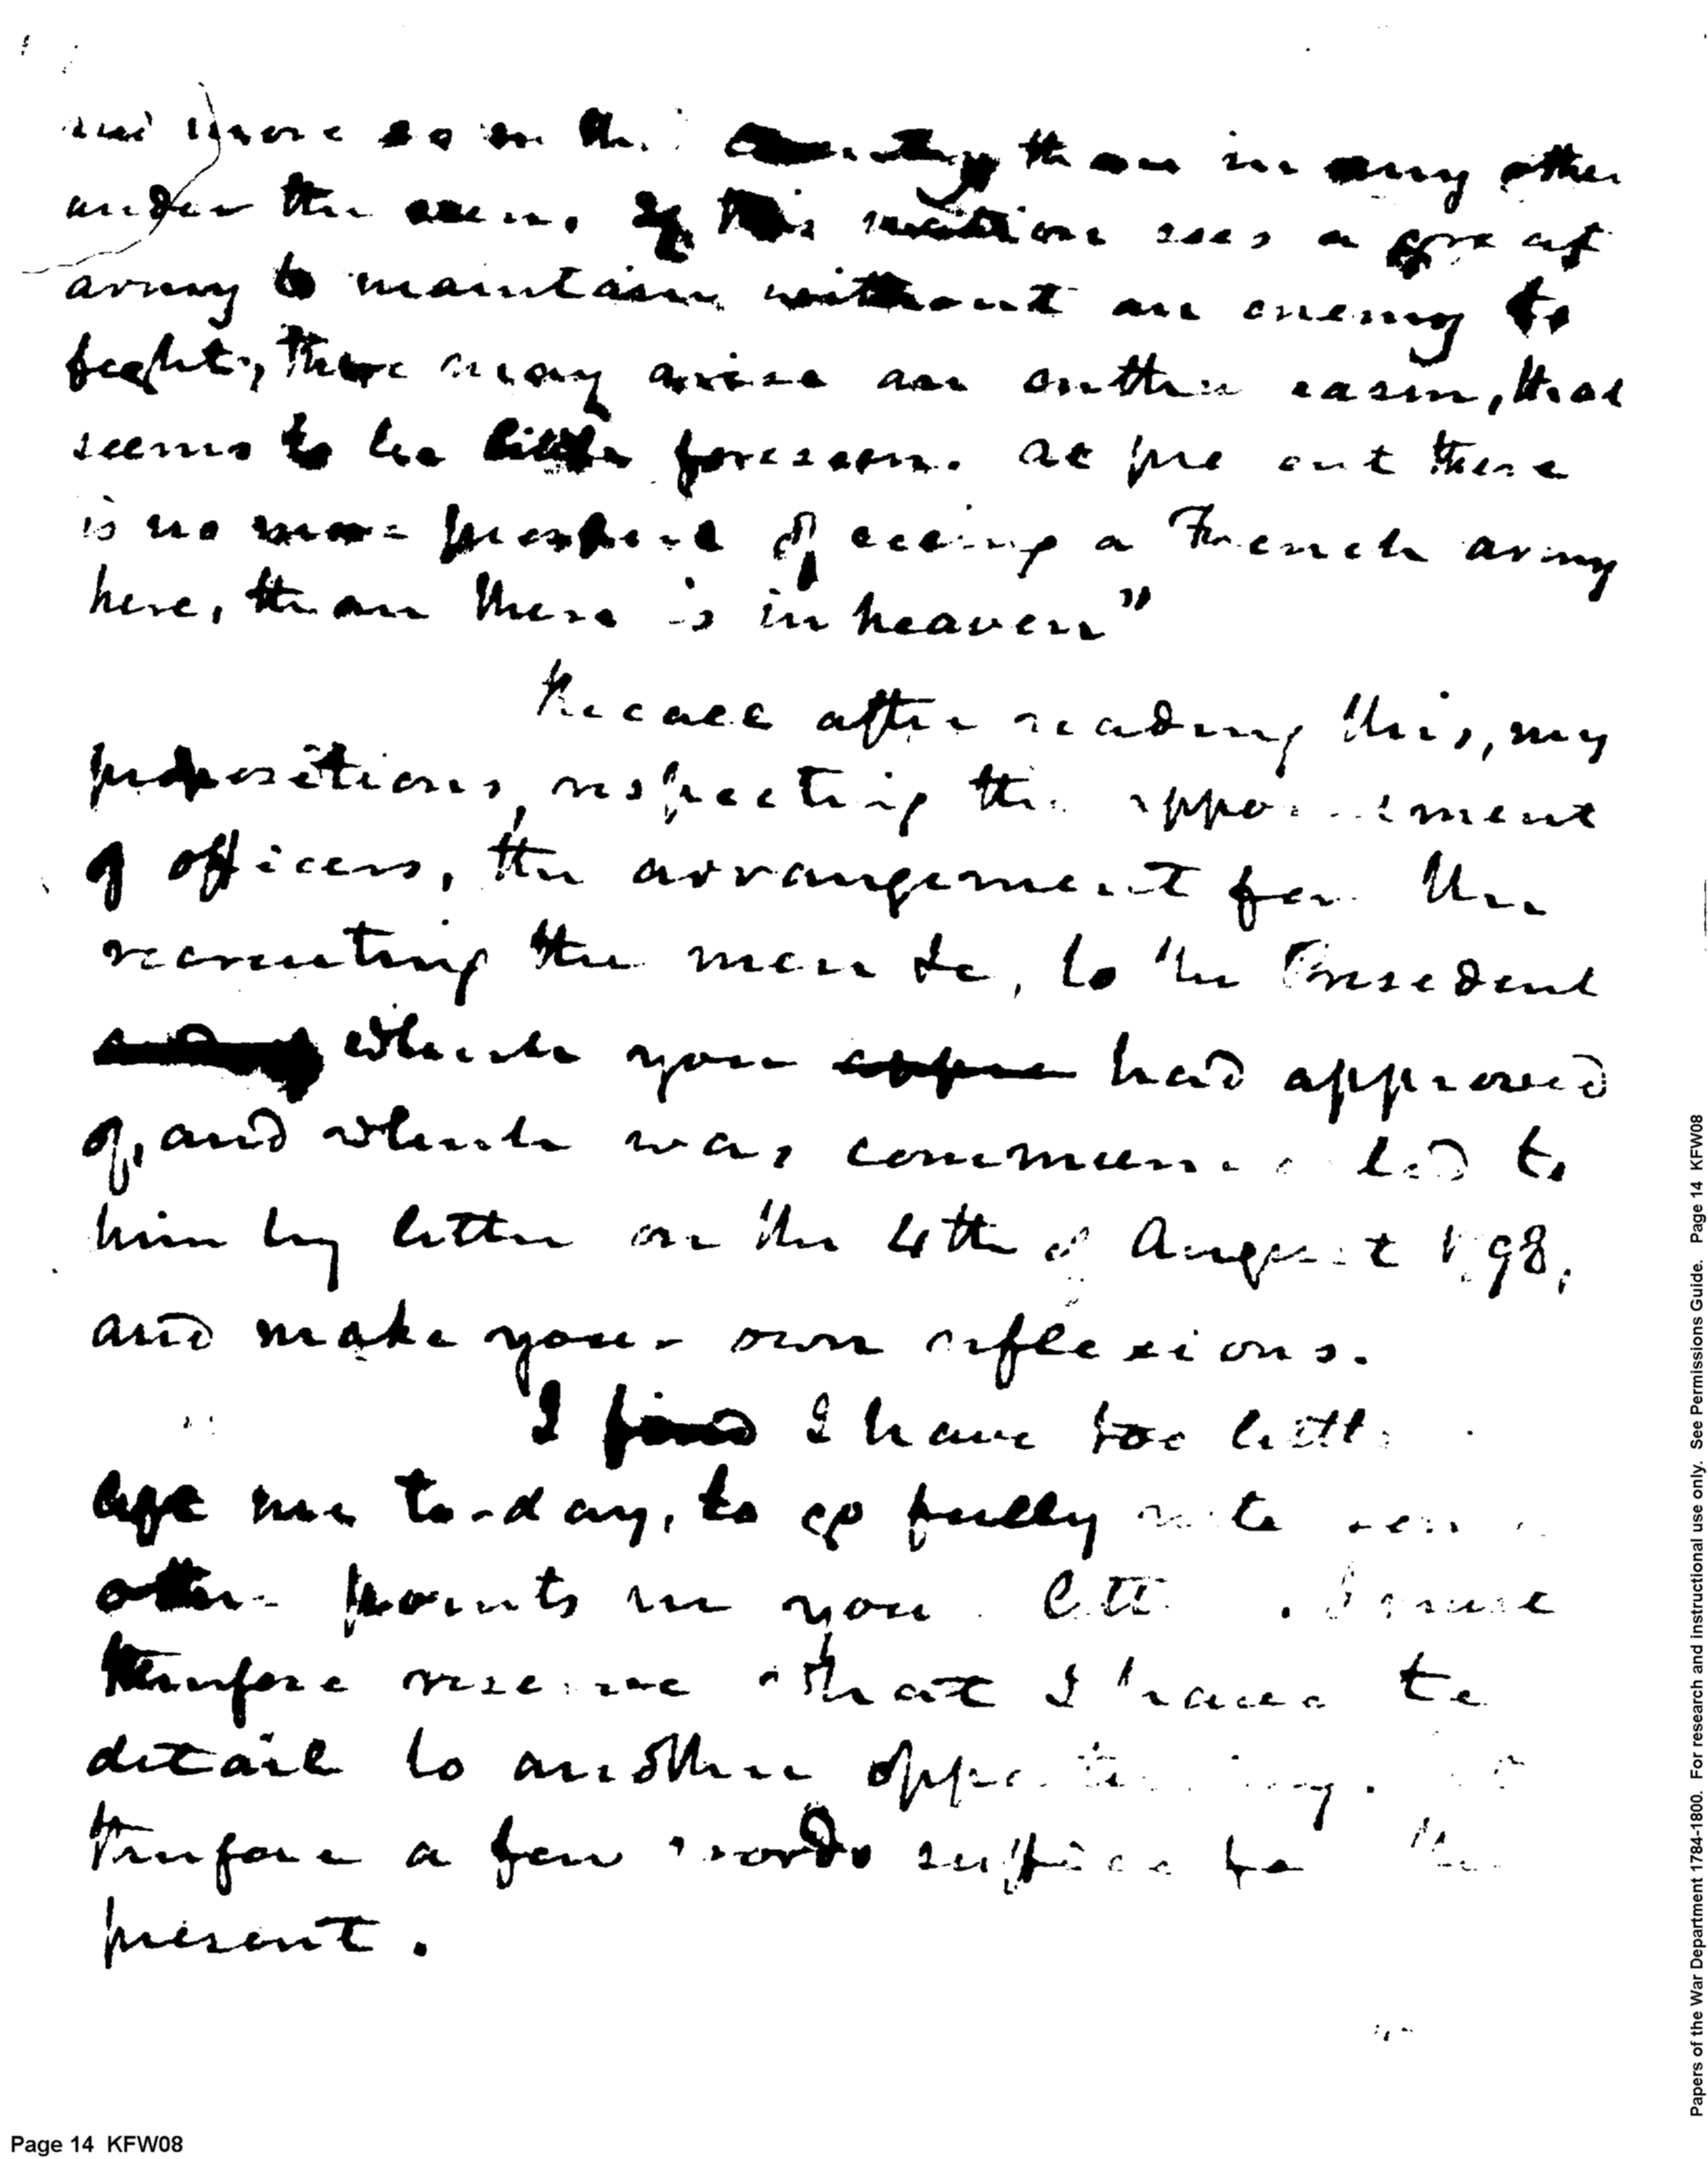 and more so in this country than in any other
under the sun. If this nation sees a great
army to maintain without an enemy to
fight, there may arise an enthusiasm, that
seems to be little foreseen. At present there
is no more prospect of seeing a French army
here, than there is in heaven"
Recall after reading this, my
propositions, respecting the appointment
of officers, the arrangement for the
recruiting the men &c, to the President
which you appro had approved
of, and which was communicated to
him by letter on the 4th of August 1798,
and make your own reflexions.
I find I have too little
left me to-day, to go fully into
other points in your letter. I must
therefore reserve what I have to
detail to another opportunity.
therefore a few words suffice for the
present.
Page 14 KFW08
Papers of the War Department 1784-1800. For research and instructional use only. See Permissions Guide. Page 14 KFW08